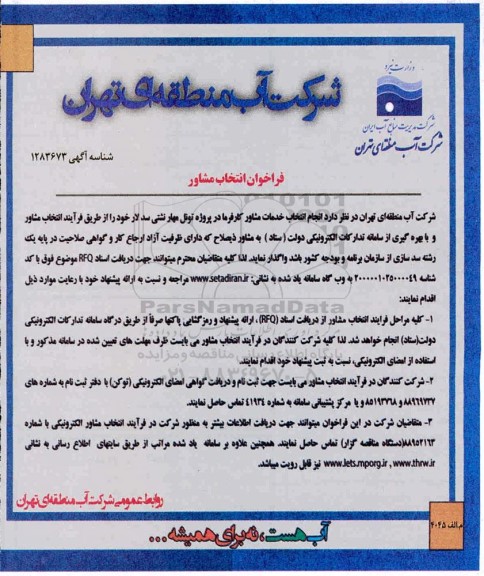 وزارت نیرو
شرکت مدیریت منابع آب ایران
شرکت آب منطقه‌ای تهران
شرکت آب منطقه‌ای تهران
شناسه آگهی ۱۲۸۳۶۷۳
فراخوان انتخاب مشاور
شرکت آب منطقه‌ای تهران در نظر دارد انجام انتخاب خدمات مشاور کارفرما در پروژه تونل مهار نشتی سد لار خود را از طریق فرآیند انتخاب مشاور
و با بهره گیری از سامانه تدارکات الکترونیکی دولت (ستاد) به مشاور ذیصلاح که دارای ظرفیت آزاد ارجاع کار و گواهی صلاحیت در پایه یک
رشته سد سازی از سازمان برنامه و بودجه کشور باشد واگذار نماید. لذا کلیه متقاضیان محترم میتوانند جهت دریافت اسناد RFQ موضوع فوق با کد
شناسه ۲۰۰۰۰۰۱۰۲۵۰۰۰۰۴۹ به وب گاه سامانه یاد شده به نشانی: www.setadiran.ir مراجعه و نسبت به ارائه پیشنهاد خود با رعایت موارد ذیل
اقدام نمایند:
۱- کلیه مراحل فرایند انتخاب مشاور از دریافت اسناد (RFQ)، ارائه پیشنهاد و رمزگشایی پاکتها صرفاً از طریق درگاه سامانه تدارکات الکترونیکی
دولت(ستاد) انجام خواهد شد. لذا کلیه شرکت کنندگان در فرآیند انتخاب مشاور می بایست ظرف مهلت های تعیین شده در سامانه مذکور و با
استفاده از امضای الکترونیکی، نسبت به ثبت پیشنهاد خود اقدام نمایند.
۲- شرکت کنندگان در فرآیند انتخاب مشاور می بایست جهت ثبت نام و دریافت گواهی امضای الکترونیکی (توکن) با دفتر ثبت نام به شماره های
۸۸۹۶۹۷۳۷ و ۸۵۱۹۳۷۶۸ و یا مرکز پشتیبانی سامانه به شماره ۴۱۹۳۴ تماس حاصل نمایند.
۳- متقاضیان شرکت در این فراخوان میتوانند جهت دریافت اطلاعات بیشتر به منظور شرکت در فرآیند انتخاب مشاور الکترونیکی با شماره
۸۸۹۵۲۱۶۳(دستگاه مناقصه گزار) تماس حاصل نمایند. همچنین علاوه بر سامانه یاد شده مراتب از طریق سایتهای اطلاع رسانی به نشانی
www.thrw.ir ، www.lets.mporg.ir نیز قابل رویت میباشد.
روابط عمومی شرکت آب منطقه‌ای تهران
م.الف ۴۰۴۵
آب هست، نه برای همیشه...
ParsNamadData
پایگاه اطلاع رسانی مناقصه و مزایده
۰۲۱-۸۸۳۴۹۶۷۰-۵